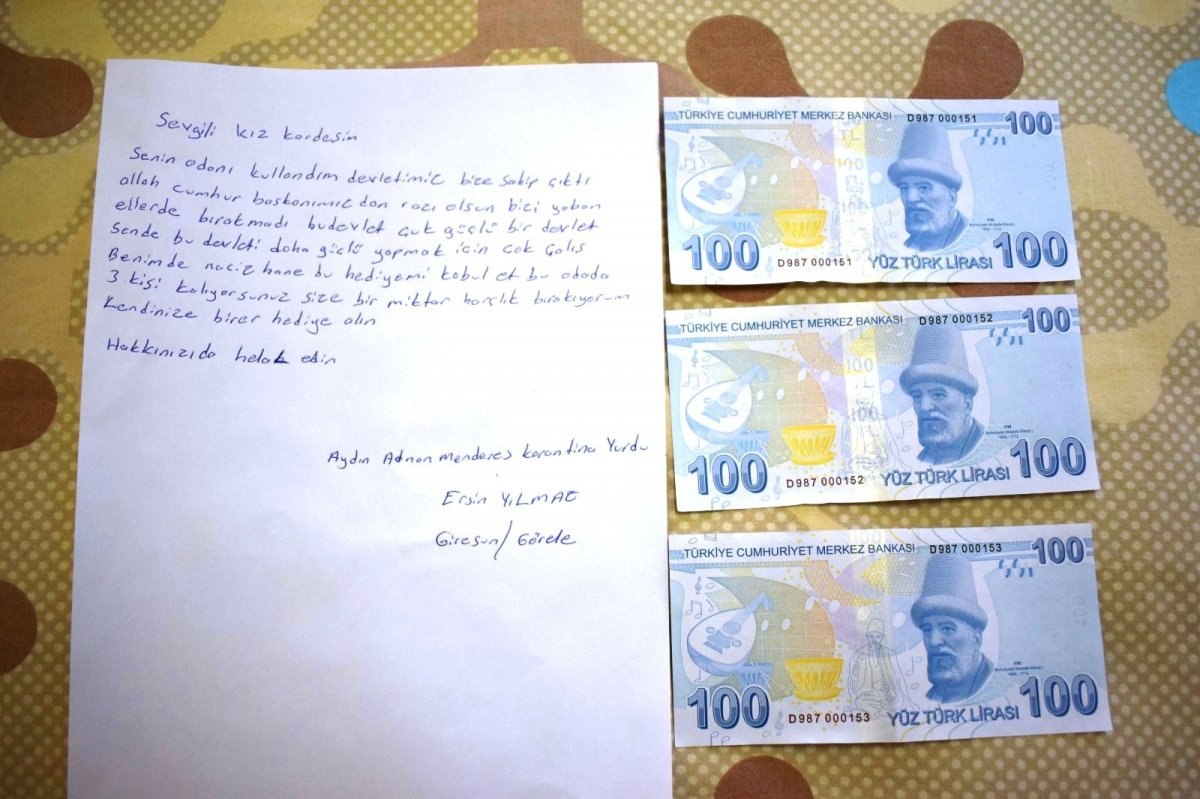 Sevgili kız kardeşim
Senin odanı kullandım devletimiz bize sahip çıktı
allah cumhur başkanımızdan razı olsun bizi yaban
ellerde bırakmadı budevlet çok güçlü bir devlet
sende bu devleti daha güçlü yapmak için çok çalış
Benimde naciz hane bu hediyemi kabul et bu odada
3 kişi kalıyorsunuz size bir miktar harçlık bırakıyorum
kendinize birer hediye alın
Hakkınızıda helal edin
Aydın Adnan Menderes karantina Yurdu
Ersin YILMAZ
Giresun/Görele
TÜRKİYE CUMHURİYET MERKEZ BANKASI D987 000151 100
100 D987 000151 YÜZ TÜRK LİRASI 100
TÜRKİYE CUMHURİYET MERKEZ BANKASI D987 000152 100
100 D987 000152 YÜZ TÜRK LİRASI 100
TÜRKİYE CUMHURİYET MERKEZ BANKASI D987 000153 100
100 D987 000153 YÜZ TÜRK LİRASI 100